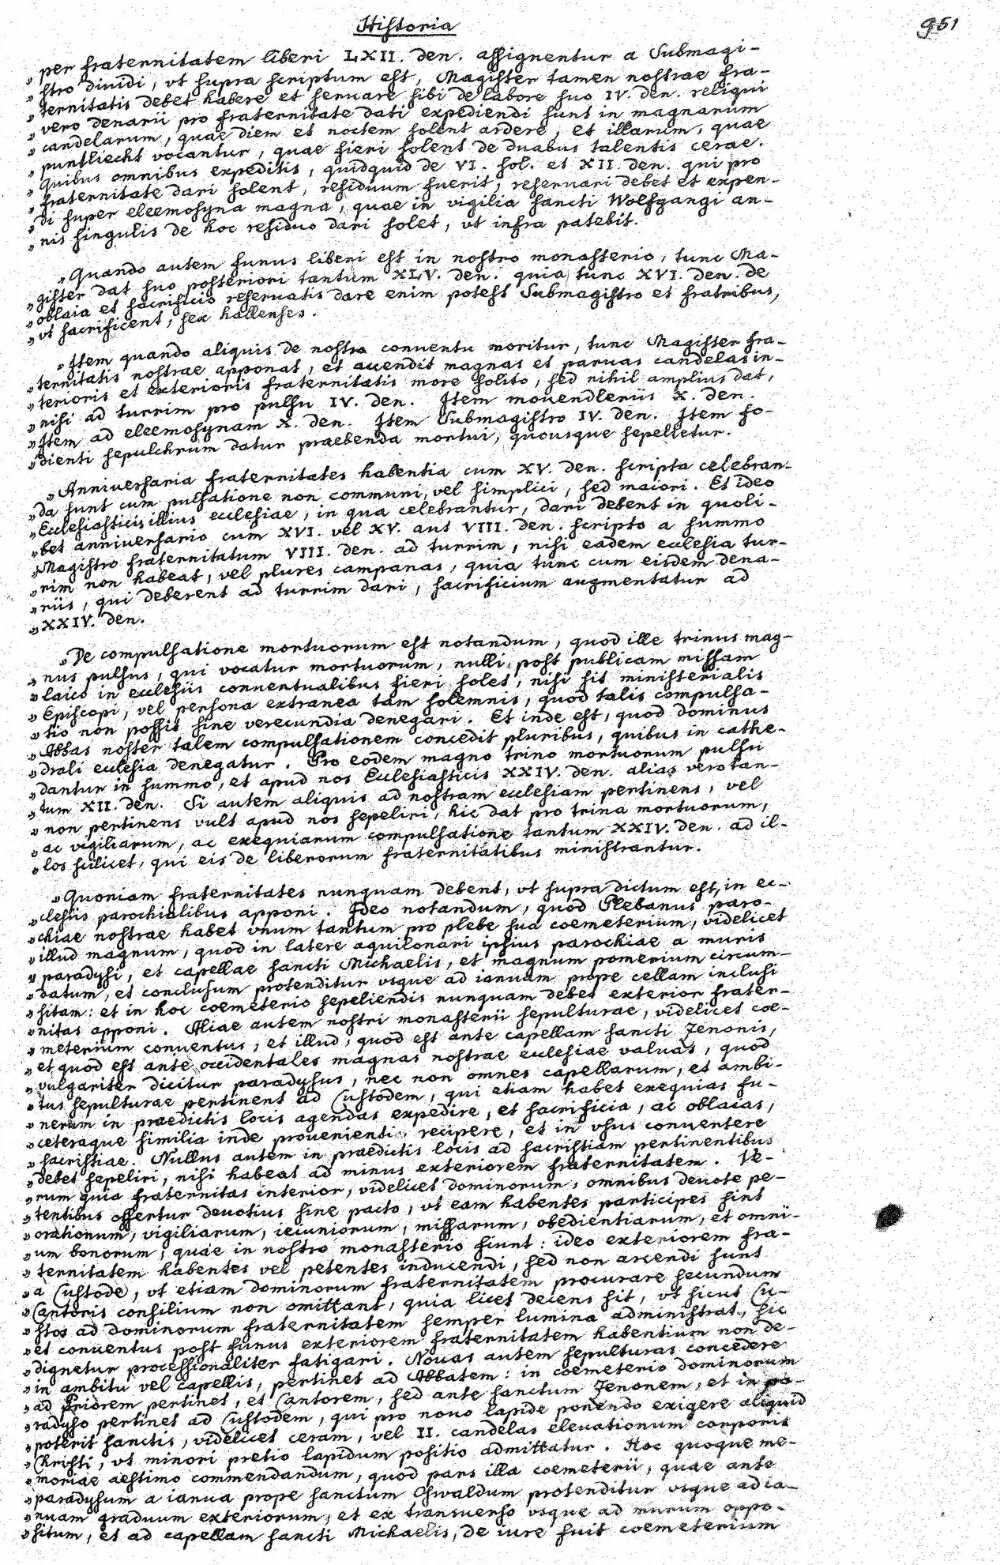 Historia
951
per fraternitatem liberi LXII. den. assignentur a Submagi-
„ stro diuidi, vt supra scriptum est, Magister tamen nostrae fra-
„ ternitatis debet habere et seruare sibi de labore suo IV. den. reliqui
„ vero denarii pro fraternitate dati expediendi sunt in magnarum
„ candelarum, quae diem et noctem solent ardere, et illarum, quae
„ puntliecht vocantur, quae fieri solent de duabus talentis cerae.
„ Quibus omnibus expeditis, quidquid de VI. sol. et XII. den. qui pro
„ fraternitate dari solent, residuum fuerit, reseruari debet et expen-
„ di super eleemosyna magna, quae in vigilia sancti Wolfgangi an-
„ nis singulis de hoc residuo dari solet, vt infra patebit.
„ Quando autem funus liberi est in nostro monasterio, tunc Ma-
„ gister dat suo posteriori tantum XLV. den. quia tunc XVI. den. de
„ oblaia et sacrificio reseruatis dare enim potest Submagistro et fratribus,
„ vt sacrificent, sex hallenses.
„ Item quando aliquis de nostro conuentu moritur, tunc Magister fra-
„ ternitatis nostrae apponat, et accendit magnas et paruas candelas in-
„ terioris et exterioris fraternitatis more solito, sed nihil amplius dat,
„ nisi ad turrim pro pulsu IV. den. Item mouendleriis X. den.
„ Item ad eleemosynam X. den. Item Submagistro IV. den. Item fo-
„ dienti sepulchrum datur praebenda mortui, quousque sepelletur.
„ Anniuersaria fraternitates habentia cum XV. den. scripta celebran-
„ da sunt cum pulsatione non communi, vel simplici, sed maiori. Et ideo
„ Ecclesiasticis illius ecclesiae, in qua celebrantur, dari debent in quoli-
„ bet anniuersario cum XVI. vel XV. aut VIII. den. scripto a summo
„ Magistro fraternitatum VIII. den. ad turrim, nisi eadem ecclesia tur-
„ rim non habeat, vel plures campanas, quia tunc cum eisdem dena-
„ riis, qui deberent ad turrim dari, sacrificium augmentatur ad
„ XXIV. den.
„ De compulsatione mortuorum est notandum, quod ille trinus mag-
„ nus pulsus, qui vocatur mortuorum, nulli post publicam missam
„ laico in ecclesiis conuentualibus fieri solet, nisi sit ministerialis
„ Episcopi, vel persona extranea tam solemnis, quod talis compulsa-
„ tio non possit sine verecundia denegari. Et inde est, quod dominus
„ Abbas noster talem compulsationem concedit pluribus, quibus in cathe-
„ drali ecclesia denegatur. Pro eodem magno trino mortuorum pulsu
„ dantur in summo, et apud nos Ecclesiasticis XXIV. den. alias vero tan-
„ tum XII. den. Si autem aliquis ad nostram ecclesiam pertinens, vel
„ non pertinens vult apud nos sepeliri, hic dat pro trina mortuorum,
„ ac vigiliarum, ac exequiarum compulsatione tantum XXIV. den. ad il-
„ los scilicet, qui eis de liberorum fraternitatibus ministrantur.
„ Quoniam fraternitates nunquam debent, vt supra dictum est, in ec-
„ clesiis parochialibus apponi. Ideo notandum, quod Plebanus paro-
„ chiae nostrae habet vnum tantum pro plebe sua coemeterium, videlicet
„ illud magnum, quod in latere aquilonari ipsius parochiae a muris
„ paradysi, et capellae sancti Michaelis, et magnum pomerium circum-
„ datum, et conclusum protenditur vsque ad ianuam prope cellam inclusi
„ sitam: et in hoc coemeterio sepeliendis nunquam debet exterior frater-
„ nitas apponi. Aliae autem nostri monasterii sepulturae, videlicet coe-
„ meterium conuentus, et illud, quod est ante capellam sancti Zenonis,
„ et quod est ante occidentales magnas nostrae ecclesiae valuas, quod
„ vulgariter dicitur paradysus, nec non omnes capellarum, et ambi-
„ tus sepulturae pertinent ad Custodem, qui etiam habet exequias fu-
„ nerum in praedictis locis agendas expedire, et sacrificia, ac oblaias,
„ ceteraque similia inde prouenienti recipere, et in vsus conuertere
„ sacristiae. Nullus autem in praedictis locis ad sacristiam pertinentibus
„ debet sepeliri, nisi habeat ad minus exteriorem fraternitatem. Ve-
„ rum quia fraternitas interior, videlicet dominorum, omnibus deuote pe-
„ tentibus offertur deuotius sine pacto, vt eam habentes participes sint
„ orationum, vigiliarum, ieiuniorum, missarum, obedientiarum, et omni-
„ um bonorum, quae in nostro monasterio fiunt: ideo exteriorem fra-
„ ternitatem habentes vel petentes inducendi, sed non arcendi sunt
„ a Custode, vt etiam dominorum fraternitatem procurare secundum
„ Cantoris consilium non omittant, quia licet decens sit, vt sicut Cu-
„ stos ad dominorum fraternitatem semper lumina administrat, sic
„ et conuentus post funus exteriorem fraternitatem habentium non de-
„ dignetur processionaliter fatigari. Nouas autem sepulturas concedere
„ in ambitu vel capellis, pertinet ad Abbatem: in coemeterio dominorum
„ ad Priorem pertinet, et Cantorem, sed ante sanctum Zenonem, et in pa-
„ radyso pertinet ad Custodem, qui pro nouo lapide ponendo exigere aliquid
„ poterit sanctis, videlicet ceram, vel II. candelas eleuationum corporis
„ Christi, vt minori pretio lapidum positio admittatur. Hoc quoque me-
„ moriae aestimo commendandum, quod pars illa coemeterii, quae ante
„ paradysum a ianua prope sanctum Oswaldum protenditur vsque ad ia-
„ nuam graduum exteriorum, et ex transuerso vsque ad murum oppo-
„ situm, et ad capellam sancti Michaelis, de iure fuit coemeterium